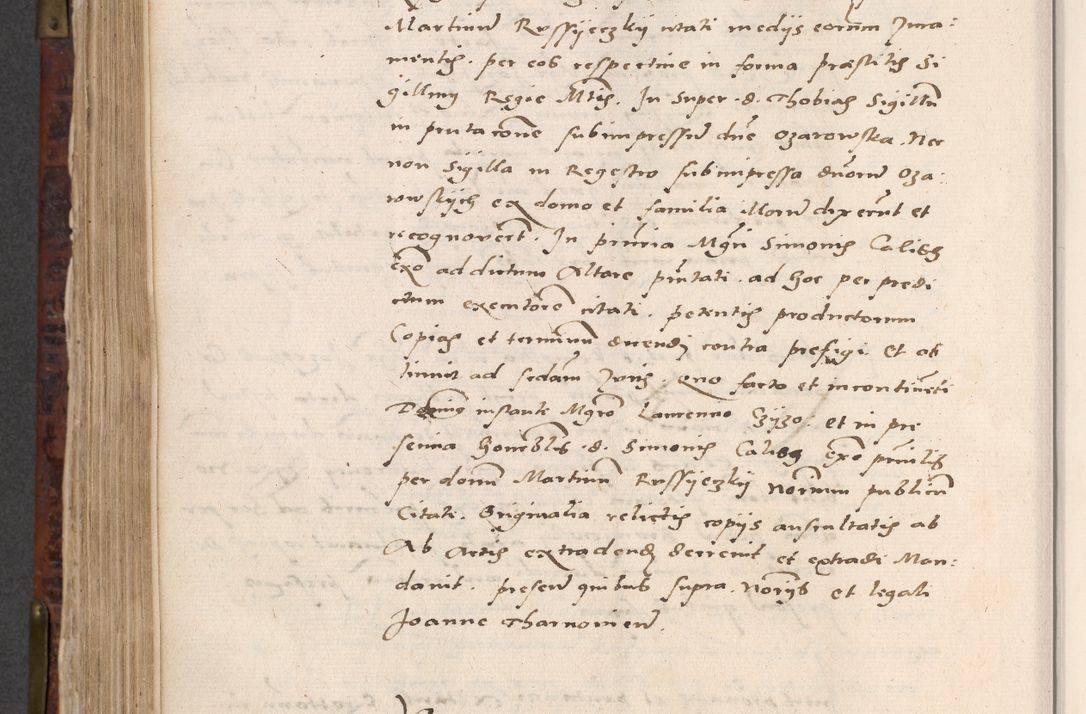 Martinum Russyeczky citati medys eorum Jura:
mentis. per eos respective in forma præstitis Si
gillum Regie Mtis. In super. d. Thobias Sigillũ
in prntacone subimpressũ dne Ozarowska. Nec
non Sigilla in Regestro subimpressa duorũ Oza:
rowskych ex domo et familia Morũ dixerũt et
recognoverũt. In pñtia Mgri Simonis Calisz
Exõ ad dictum Altare pñtati. ad hoc per predi
ctum executorẽ citati. petentis productorum
Copias et terminum dicendi contra prefigi et ob
tinuit ad sedam Juris. Quo facto et incontinẽti
Dominus instante Mgro Laurencio Zyzo: et in pre
sentia honorblis d. Simonis Calisz Exõ
per donum Martinũ Russyeczky Norium publicũ
Citati. Originalia relictis copys auscultatis ab
Ab Actis extradendi decrevit et extradi Man:
davit. presentẽ quibus supra. Norys et legali
Joanne Tharnowieñ.